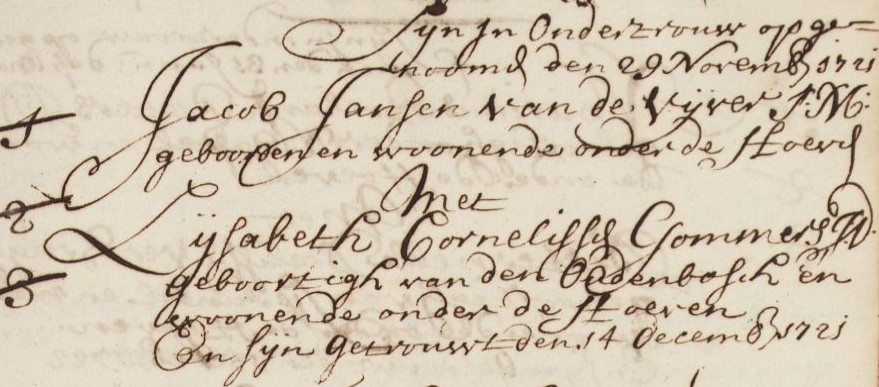 Sijn in Ondertrouw op ge=
noomen den 29 Novemb 1721
1 Jacob Jansen van de Vijver J:M:
gebooren en woonende onder de Hoeven
Met
2 Lijsabeth Cornelissen Gommers JD.
3 geboortigh van den Oudenbosch en
woonende onder de Hoeven
En sijn getrouwt den 14 Decemb 1721